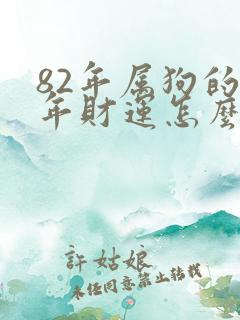 82年属狗的
年财运怎麽
許姑娘
未经同意禁止转载